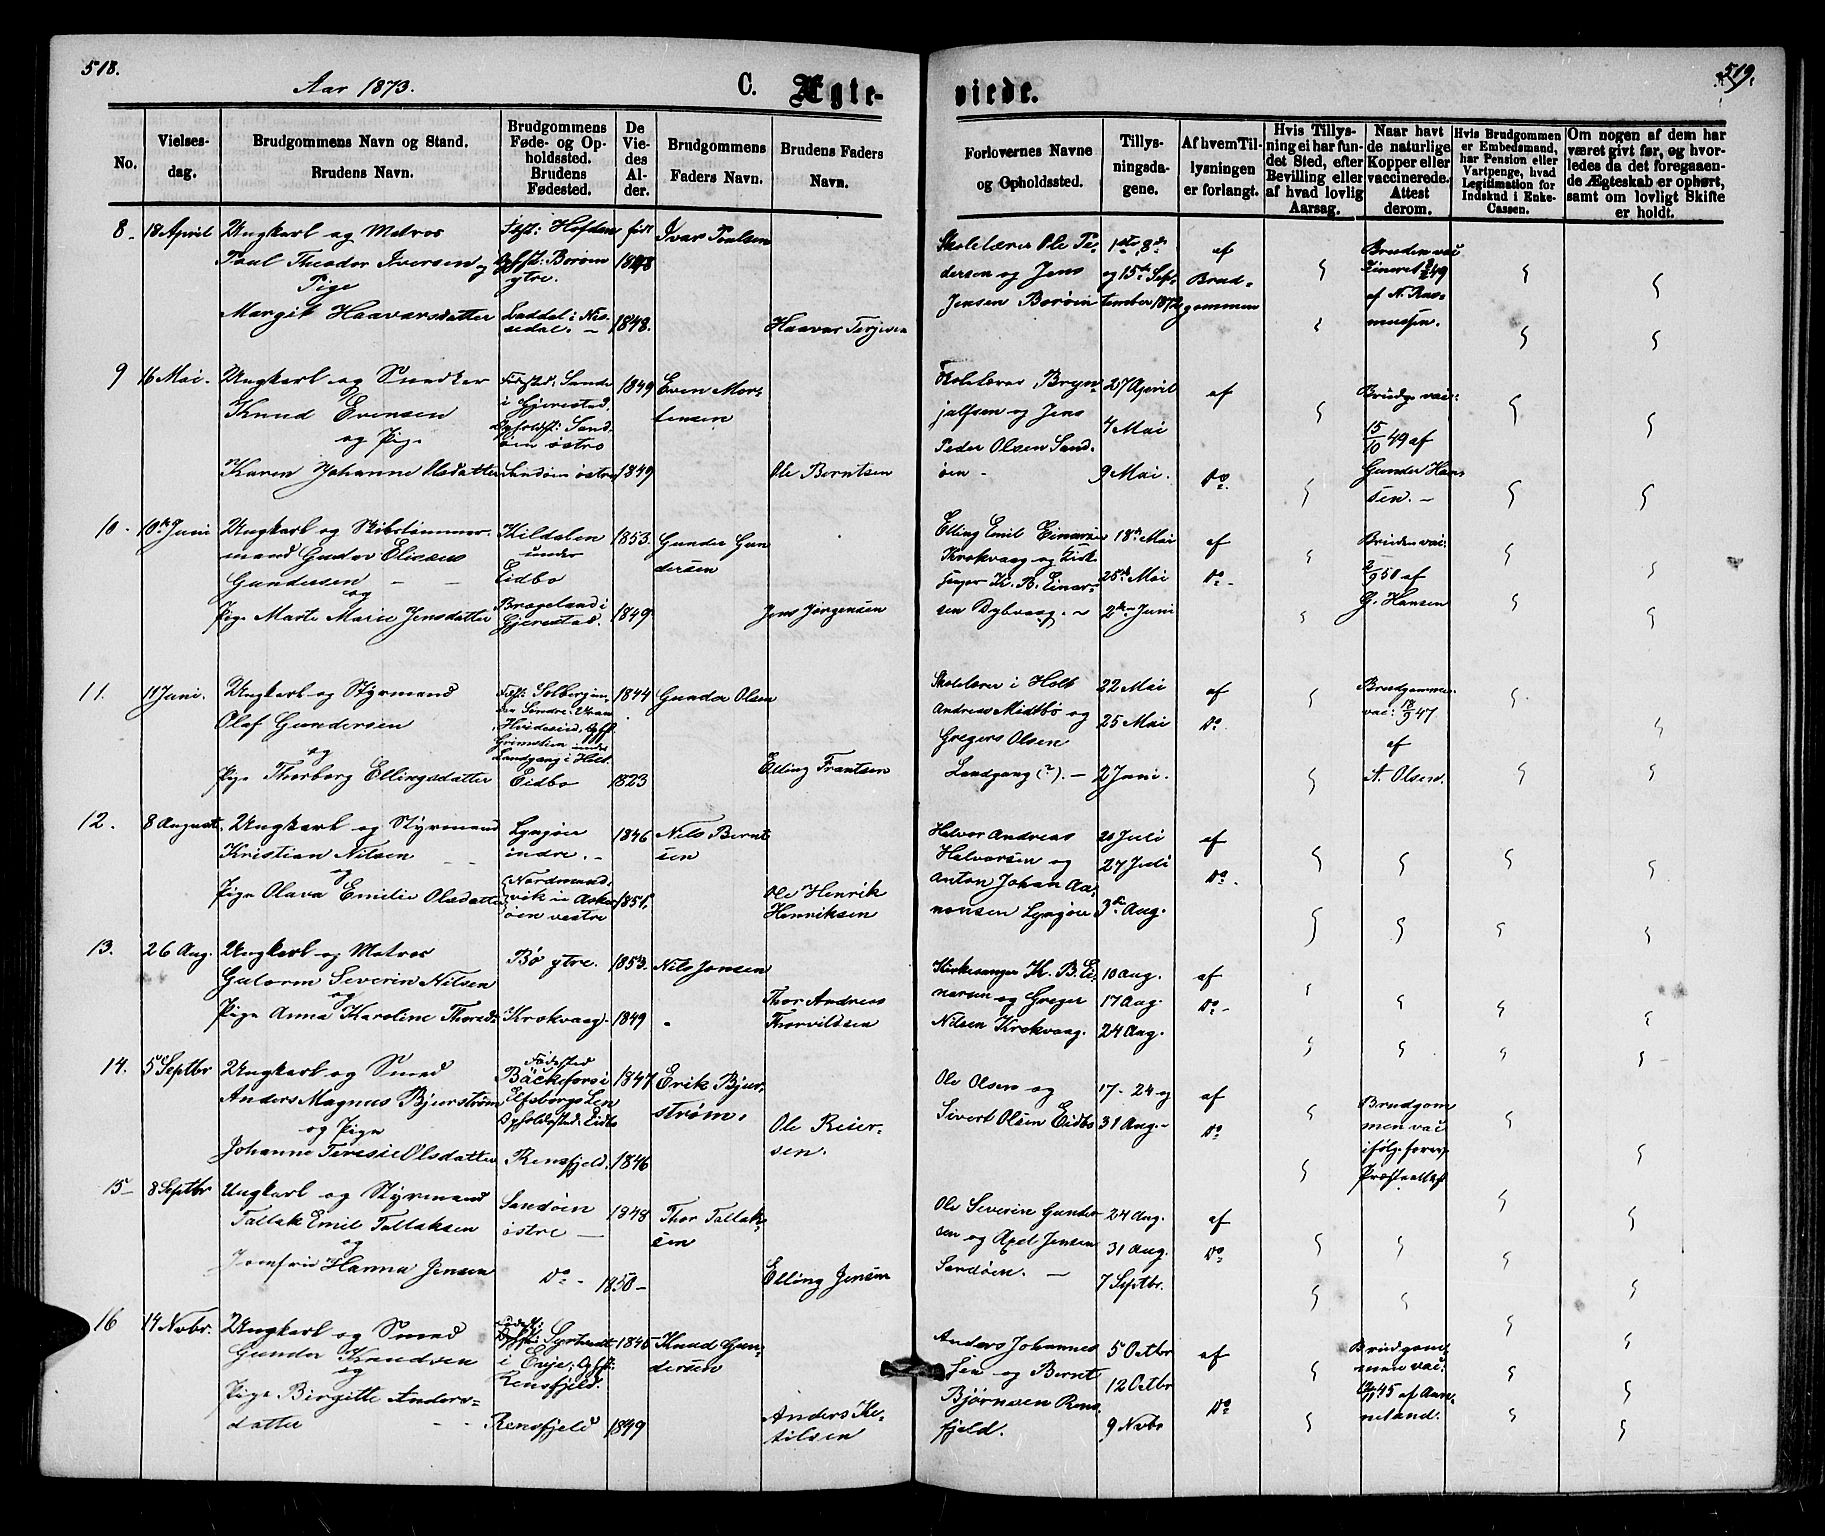 518.
Aar 1873.
C. Ægte-
viede.
519.
No.
Vielses-
dag.
Brudgommens Navn og Stand.
Brudens Navn.
Brudgommens
Føde- og Op-
holdssted.
Brudens
Fødested.
De
Vie-
des
Al-
der.
Brudgommens
Faders Navn.
Brudens Faders
Navn.
Forlovernes Navne
og Opholdssted.
Tillys-
ningsda-
gene.
Af hvem Til-
lysningen
er forlangt.
Hvis Tillys-
ning ei har fun-
det Sted, efter
Bevilling eller
af hvad lovlig
Aarsag.
Naar havt
de naturlige
Kopper eller
vaccinerede.
Attest
derom.
Hvis Brudgommen
er Embedsmand,
har Pension eller
Vartpenge, hvad
Legitimation for
Indskud i Enke-
Cassen.
Om nogen af dem har
været givt før, og hvor-
ledes da det foregaaen-
de Ægteskab er ophørt,
samt om lovligt Skifte
er holdt.
8. 18 April Ungkarl og Matros
Poul Theodor Iversen og
Pige
Margit Haavarsdatter
Hofden
Opfst: Borøen
ytre.
Laddal i Nis-
sedal. –
født
1848
1848.
Ivar Poulsen
Haavar Terjesen
Skolelærer Ole Pe-
dersen og Jens
Jensen Borøen
1ste, 8de
og 15de Sep-
tember 1872
af
Brud-
gommen
Bruden vac-
cineret 49
af N. Ras-
mussen.
9 16 Mai. Ungkarl og Snedker
Knud Evensen
og Pige
Karen Johanne Olsdatter
Fødested: Sande
i Gjerestad,
Opholdst: Sand-
øen østre
Sandøen østre
1849
1849
Even Mor-
tensen
Ole Berntsen
Skolelærer Bryn-
julfsen og Jens
Peder Olsen Sand-
øen –
27 April
4 Mai
9 Mai.
af
Do.
Brudgs vac:
15/10 49 af
Gunder Han-
sen. –
10. 10de Juni Ungkarl og Skibstømmer-
mand Gustav Elisæus
Gundersen – –
og
Pige Marte Marie Jensdatter
Kildalen
under
Eidbo
Brageland i
Gjerestad.
1853.
1849.
Gunder Gun-
dersen
Jens Jørgensen
Elling Emil Einarsen
Krokvaag og Kirke-
sanger K. B. Einar-
sen Dybvaag. –
18de Mai
25de Mai
2den Juni
af
Do –
Bruden vac:
2/9 50 af
G. Hansen
11. 11 Juni. Ungkarl og Styrmand
Olaf Gundersen
og
Pige Thorborg Ellingsdatter
Grimstien under
Landgang i Holt
Eidbo
1844
1823
Gunder Olsen
Elling Frantsen
Skolelærer i Holt
Andreas Midtbø og
Gregers Olsen
Landgang (?). –
22 Mai
25 Mai
2 Juni.
af
Do
Brudgommen
vac: 18/9 47
af
A. Olsen.
12. 8 August. Ungkarl og Styrmand
Kristian Nilsen – –
og
Pige Olava Emilie Olsdatter
Lyngøer
indre. –
Nordmand-
vik i Asker-
øen vestre
1846
1851.
Nils Bernt-
sen
Ole Henrik
Henriksen
Halvor Andreas
Halvorsen og
Anton Johan Aa-
nonsen Lyngøer
20 Juli
27 Juli
3de Aug.
af
Do.
13. 26 Aug. Ungkarl og Matros
Guttorm Severin Nilsen
og
Pige Anna Karoline Thorsd.
Bø ytre.
Krokvaag
1853.
1849
Nils Jonsen
Thor Andreas
Thorvildsen
Kirkesanger K. B. Ei-
narsen og Greger
Nilsen Krokvaag.
10 Aug.
17 Aug
24 Aug.
af
Do –
14. 5 Septbr Ungkarl og Smed
Anders Magnus Bjurstrøm
og Pige
Johanne Teresie Olsdatter
Fødested
Bäckefors i
Elfsborgs Len
Opholdssted: Eidbo
Rensfjeld.
1847
1846
Erik Bjur-
strøm.
Ole Reier-
sen.
Ole Olsen og
Sivert Olsen Eidbo
17 – 24 og
31 Aug. –
af
Do
Brudgom
men vac
ifølge
Præsteattest
15 – 8 Septbr Ungkarl og Styrmand
Tallak Emil Tallaksen
og
Jomfru Hanna Jensen
Sandøen
østre –
Do –
1848
1850 –
Thor Tallak-
sen
Elling Jensen
Ole Severin Gunder-
sen og Axel Jensen
Sandøen. –
24 Aug.
31 Aug.
7 Septbr.
af
Do
16 14 Novbr. Ungkarl og Smed
Gunder Knudsen
og
Pige Birgitte Anders-
datter – –
i Enje, Opfst:
Rensfjeld.
Rensfjeld
1845
1849
Knud Gun-
dersen
Anders Ke-
tilsen
Anders Johannes-
sen og Bernt
Bjørnsen Rens-
fjeld.
5 Octbr
12 Octbr
9 Novbr
af
Do
Brudgom-
men vac.
45 af Aan-
neland.